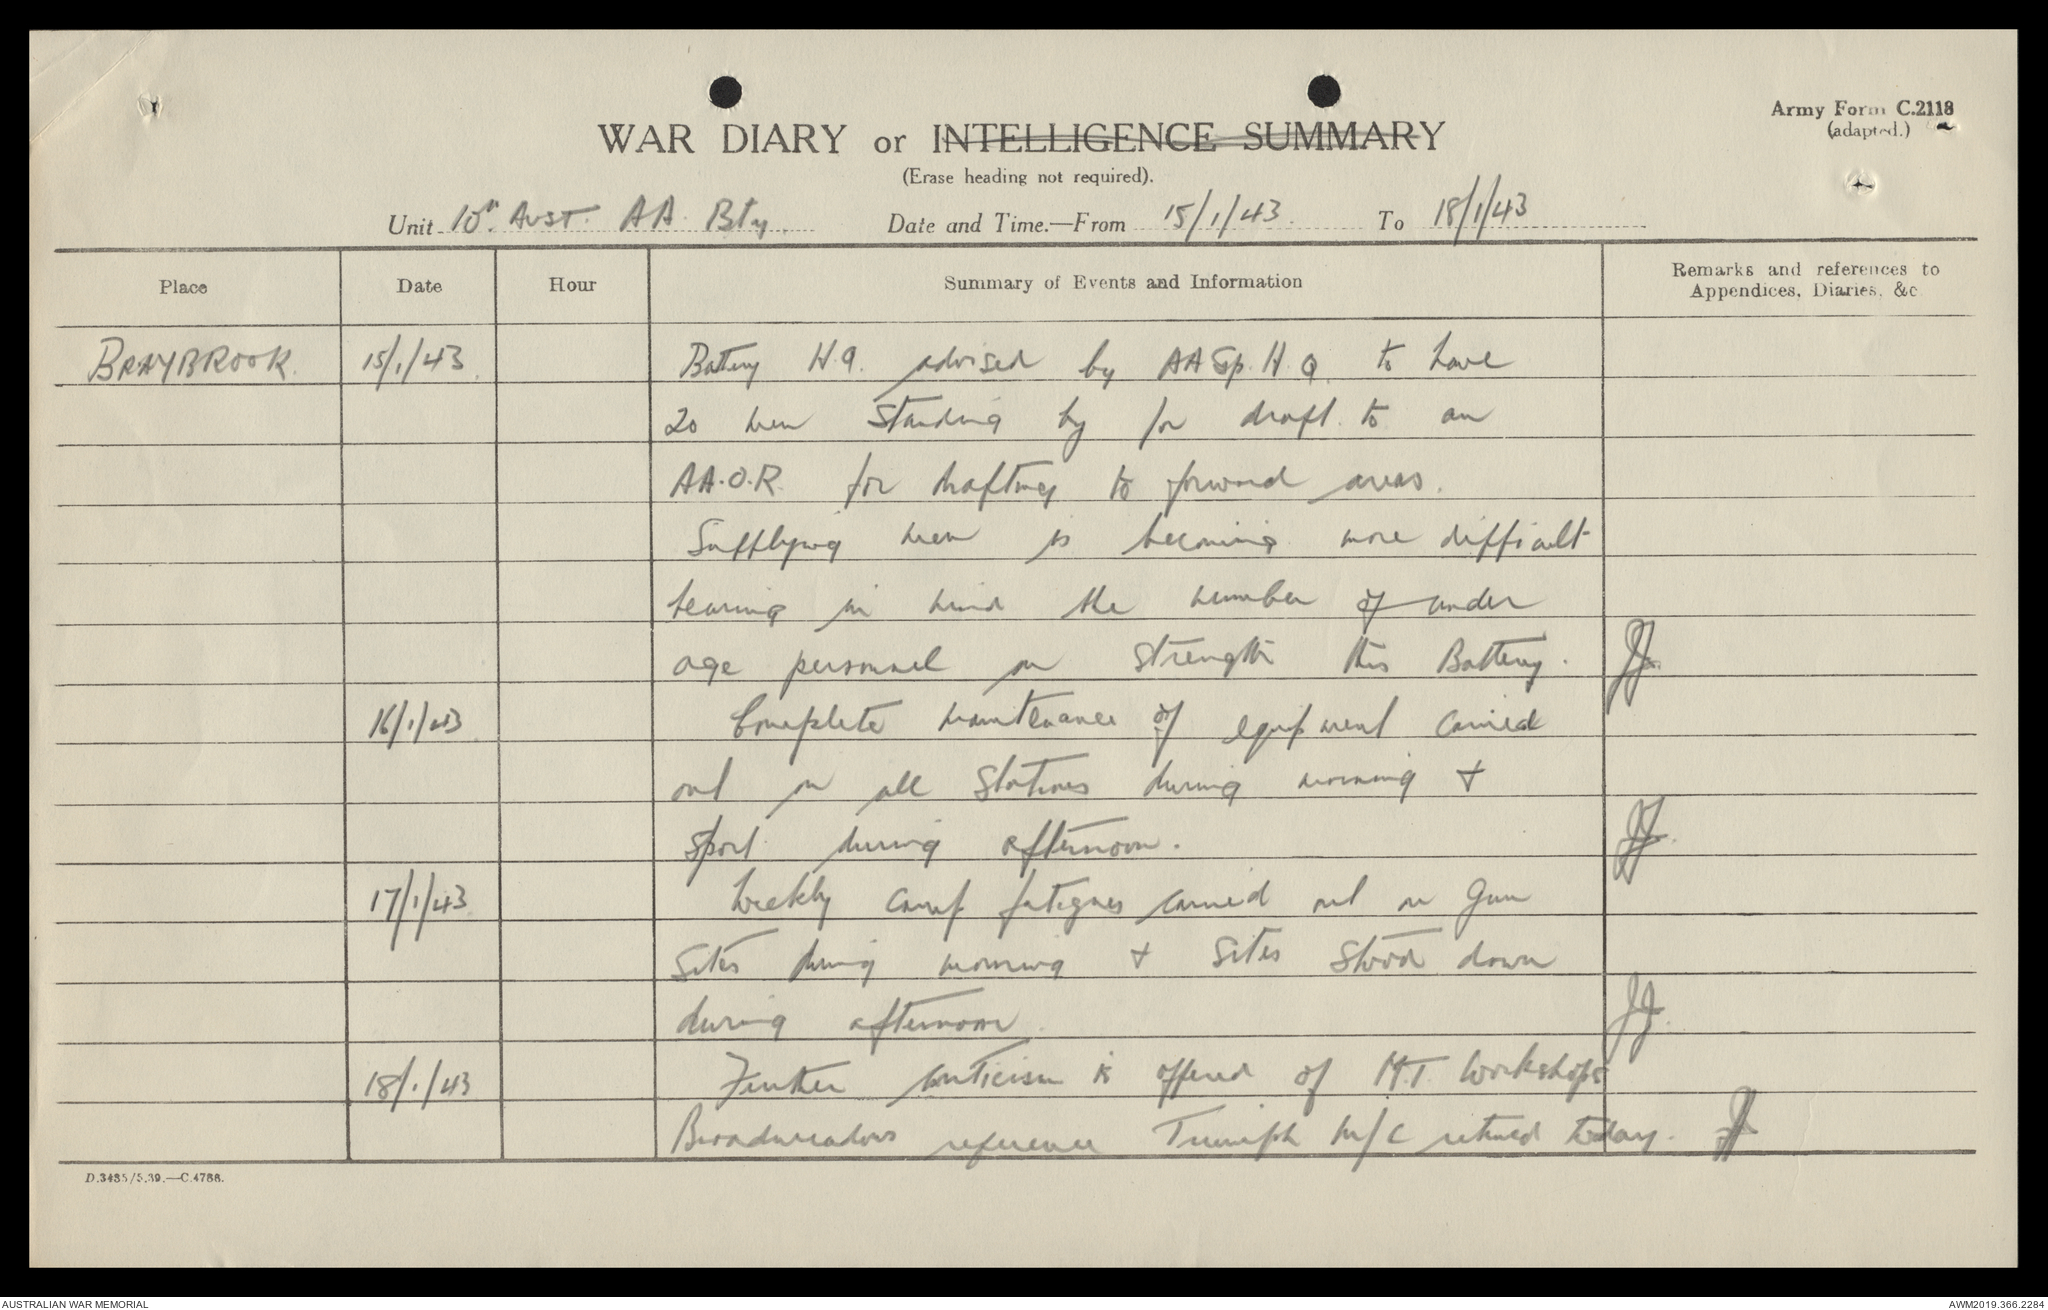 Army Form C.2118
(adapted.)
WAR DIARY or INTELLIGENCE SUMMARY
(Erase heading not required).
Unit 10th Aust. AA. Bty. Date and Time.—From 15/1/43. To 18/1/43
Place Date Hour Summary of Events and Information Remarks and references to Appendices, Diaries, &c
BRAYBROOK. 15/1/43. Battery H.Q. advised by AA Gp. H.Q. to have
20 men standing by for draft to an
AA.O.R. for drafting to forward areas.
Supplying men is becoming more difficult
bearing in mind the number of under
age personnel on strength this Battery. JJ.
16/1/43. Complete maintenance of equipment carried
out on all stations during morning &
sport during afternoon. JJ.
17/1/43. Weekly camp fatigues carried out on Gun
Sites during morning & Sites stood down
during afternoon. JJ.
18/1/43 Further criticism is offered of M.T. Workshops
Broadmeadows reference Triumph M/C retned today. JJ
D.3485/5.39.—C.4788.
AUSTRALIAN WAR MEMORIAL
AWM2019.366.2284